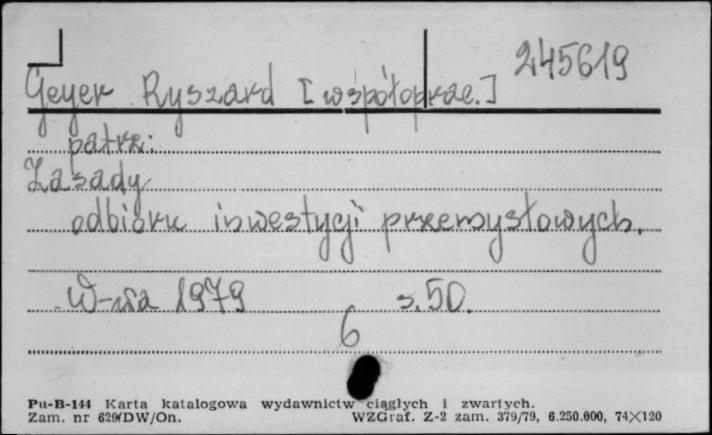 245619
Geyer Ryszard [współoprac.]
patrz:
Zasady
odbioru inwestycji przemysłowych.
W-wa 1979 s. 50.
6
Pu-B-144 Karta katalogowa wydawnictw ciągłych i zwartych.
Zam. nr 629/DW/On. WZGraf. Z-2 zam. 379/79, 6.250.000, 74×120